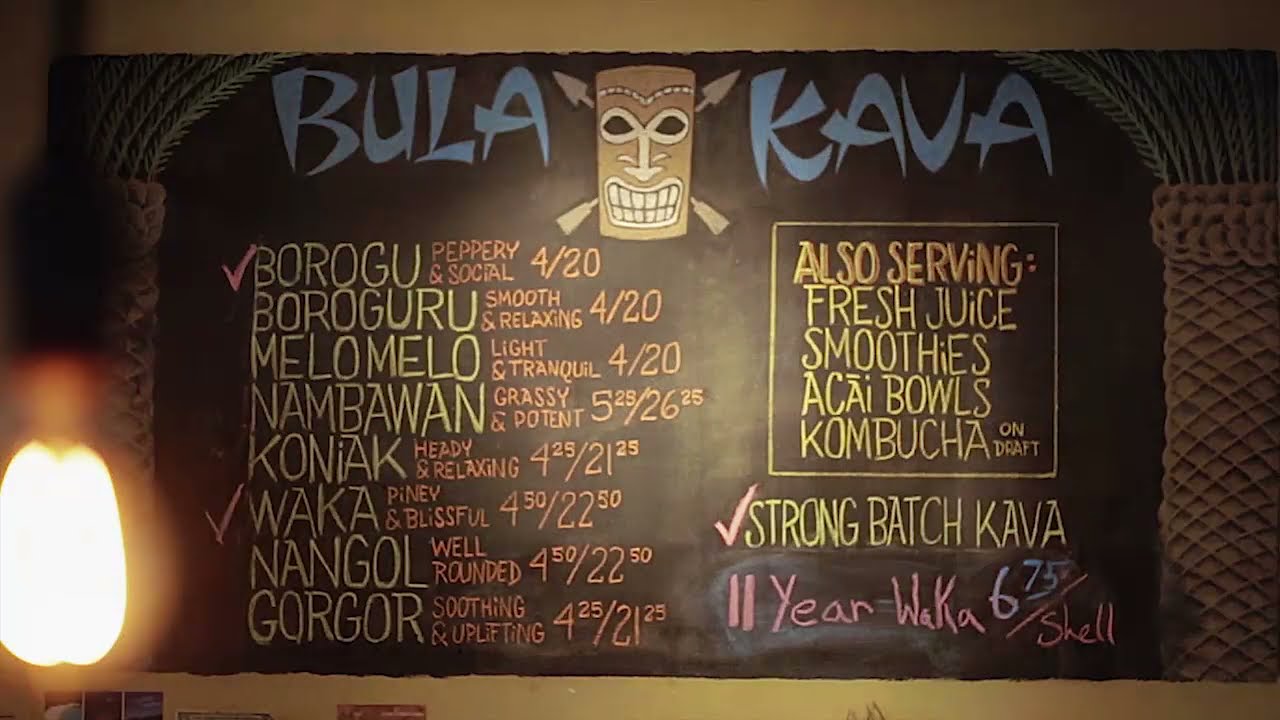 BULA KAVA
BOROGU PEPPERY & SOCIAL 4/20
BOROGURU SMOOTH & RELAXING 4/20
MELOMELO LIGHT & TRANQUIL 4/20
NAMBAWAN GRASSY & POTENT 5²⁵/26²⁵
KONIAK HEADY & RELAXING 4²⁵/21²⁵
WAKA PINEY & BLISSFUL 4⁵⁰/22⁵⁰
NANGOL WELL ROUNDED 4⁵⁰/22⁵⁰
GORGOR SOOTHING & UPLIFTING 4²⁵/21²⁵
ALSO SERVING:
FRESH JUICE
SMOOTHIES
ACAI BOWLS
KOMBUCHA ON DRAFT
STRONG BATCH KAVA
11 Year Waka 6⁷⁵/Shell